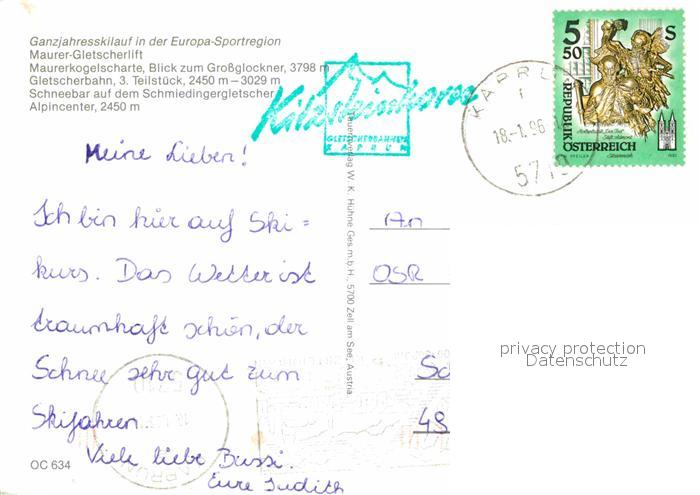 Ganzjahresskilauf in der Europa-Sportregion
Maurer-Gletscherlift
Maurerkogelscharte, Blick zum Großglockner, 3798 m
Gletscherbahn, 3. Teilstück, 2450 m – 3029 m
Schneebar auf dem Schmiedingergletscher
Alpincenter, 2450 m
Kitzsteinhorn
GLETSCHERBAHNEN
KAPRUN
KAPRUN
18.-1.96
5710
5 S
50
REPUBLIK
ÖSTERREICH
Meine Lieben!
Ich bin hier auf Ski=
kurs. Das Wetter ist
traumhaft schön, der
Schnee sehr gut zum
Skifahren.
Viele liebe Bussi.
Eure Judith
An
OSR
Sc
49
W. K. Hühne Ges.m.b.H., 5700 Zell am See, Austria
OC 634
privacy protection
Datenschutz